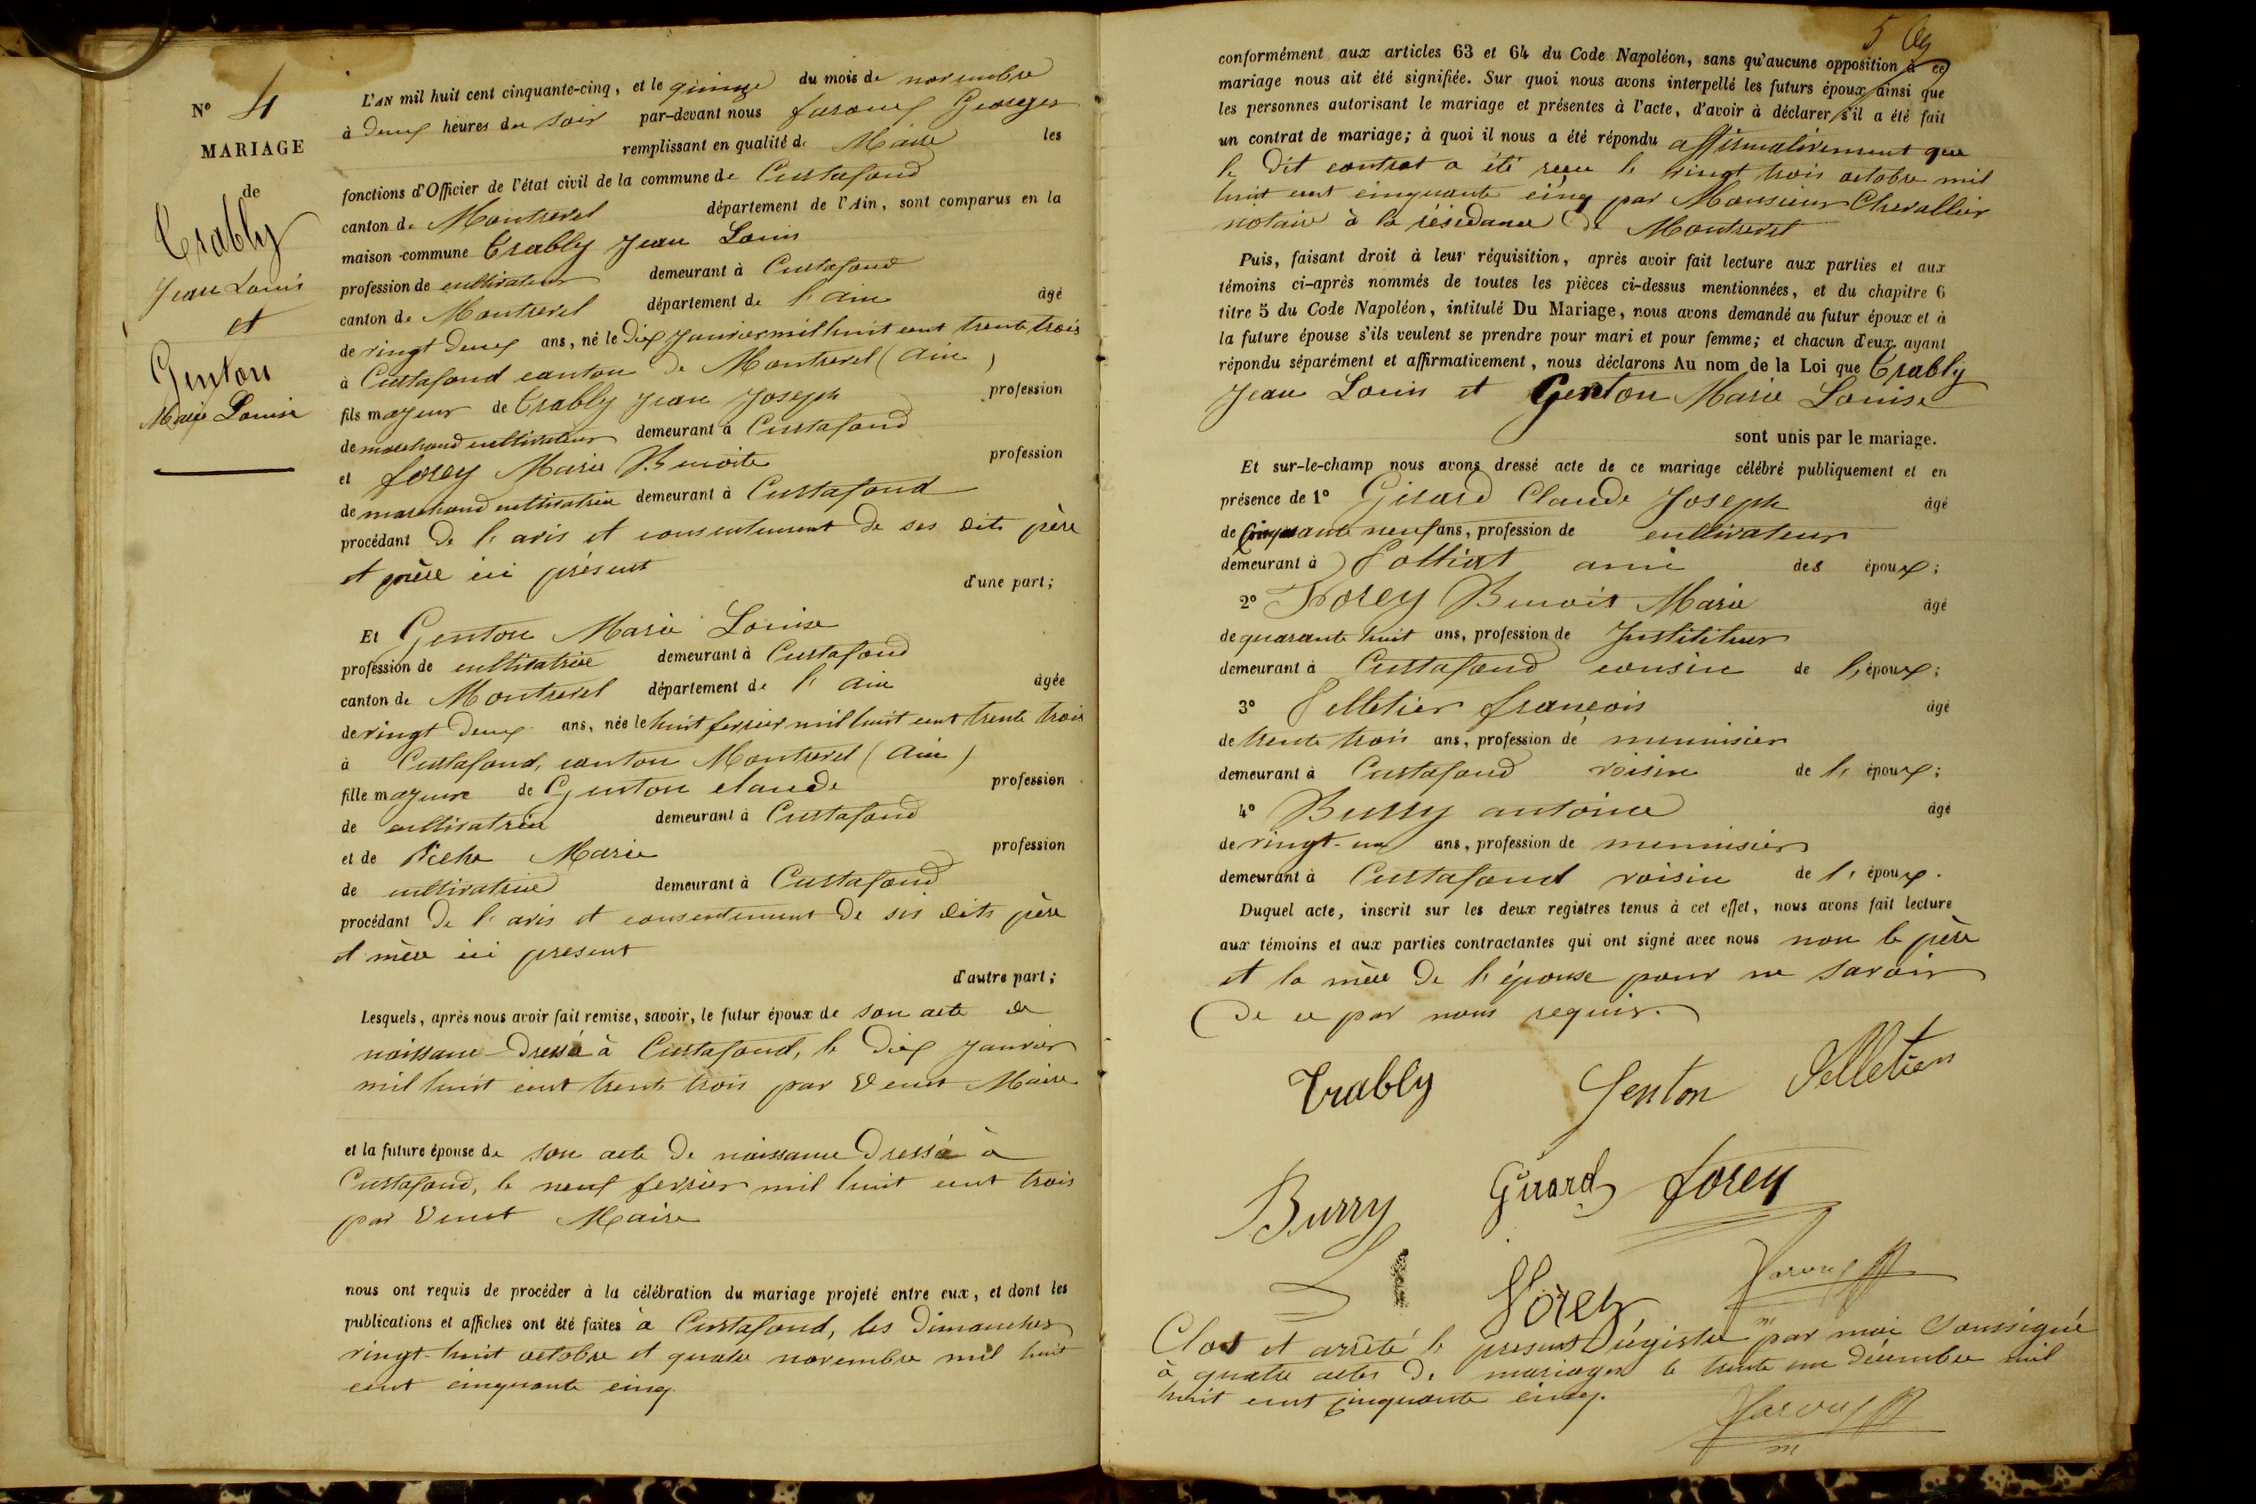 N° 4
MARIAGE
de
Trably
Jean Louis
et
Genton
Marie Louise
L'AN mil huit cent cinquante-cinq, et le quinze du mois de novembre
à deux heures du soir par-devant nous Georges
remplissant en qualité de Maire les
fonctions d'Officier de l'état civil de la commune de Curtafond
canton de Montrevel département de l'Ain, sont comparus en la
maison-commune Trably Jean Louis
profession de cultivateur demeurant à Curtafond
canton de Montrevel département de l'ain âgé
de vingt deux ans, né le Dix Janvier mil huit cent trente trois
à Curtafond canton de Montrevel (Ain)
fils majeur de Trably Jean Joseph profession
de marchand cultivateur demeurant à Curtafond
et forey Marie Benoite profession
de marchand cultivatrice demeurant à Curtafond
procédant De l'avis et consentement de ses dits père
et mère ici présent
d'une part;
Et Genton Marie Louise
profession de cultivatrice demeurant à Curtafond
canton de Montrevel département de l'ain âgée
de vingt deux ans, née le huit fevrier mil huit cent trente trois
à Curtafond, canton Montrevel (Ain)
fille majeure de Genton claude profession
de cultivatrice demeurant à Curtafond
et de Marie profession
de cultivatrice demeurant à Curtafond
procédant De l'avis et consentement De ses dits père
et mère ici present
d'autre part;
Lesquels, après nous avoir fait remise, savoir, le futur époux de son acte de
naissance Dressé à Curtafond, le Dix Janvier
mil huit cent trente trois par Venet Maire
et la future épouse de son acte De naissance Dressé à
Curtafond, le neuf fevrier mil huit cent trois
par Venet Maire
nous ont requis de procéder à la célébration du mariage projeté entre eux, et dont les
publications et affiches ont été faites à Curtafond, les Dimanches
vingt-huit octobre et quatre novembre mil huit
cent cinquante cinq
5
conformément aux articles 63 et 64 du Code Napoléon, sans qu'aucune opposition à ce
mariage nous ait été signifiée. Sur quoi nous avons interpellé les futurs époux ainsi que
les personnes autorisant le mariage et présentes à l'acte, d'avoir à déclarer s'il a été fait
un contrat de mariage; à quoi il nous a été répondu affirmativement que
le Dit contrat a été reçu le vingt trois octobre mil
huit cent cinquante cinq par Monsieur Chevallier
notaire à la résidance de Montrevel
Puis, faisant droit à leur réquisition, après avoir fait lecture aux parties et aux
témoins ci-après nommés de toutes les pièces ci-dessus mentionnées, et du chapitre 6
titre 5 du Code Napoléon, intitulé Du Mariage, nous avons demandé au futur époux et à
la future épouse s'ils veulent se prendre pour mari et pour femme; et chacun d'eux ayant
répondu séparément et affirmativement, nous déclarons Au nom de la Loi que Trably
Jean Louis et Genton Marie Louise
sont unis par le mariage.
Et sur-le-champ nous avons dressé acte de ce mariage célébré publiquement et en
présence de 1° Girard Claude Joseph âgé
de Cinquante neuf ans, profession de cultivateur
demeurant à Polliat ami des époux;
2° Forey Benoit Marie âgé
de quarante huit ans, profession de Instititeur
demeurant à Curtafond cousin de l'époux;
3° Pelletier françois âgé
de trente trois ans, profession de menuisier
demeurant à Curtafond voisin de l'époux;
4° Burry antoine âgé
de vingt-un ans, profession de menuisier
demeurant à Curtafond voisin de l'époux.
Duquel acte, inscrit sur les deux registres tenus à cet effet, nous avons fait lecture
aux témoins et aux parties contractantes qui ont signé avec nous non le père
et la mère De l'épouse pour ne savoir
De ce par nous requis.
Trably Genton Pelletier
Burry Girard forey
Forey
Clos et arrêté le present Régistre par moi Soussigné
à quatre actes De mariages le trente un décembre mil
huit cent cinquante cinq.